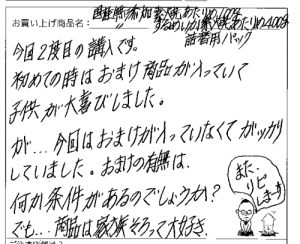 お買い上げ商品名:国産無添加素焼きあたりめ120g
するめいか素焼きあたりめ400g
詰替用パック
今回2度目の購入です。
初めての時はおまけ商品が入っていて
子供が大喜びしました。
が…今回はおまけが入っていなくてガッカリ
していました。おまけの有無は、
何か条件があるのでしょうか?
でも…商品は家族そろって大好き。
また、
リピ
します